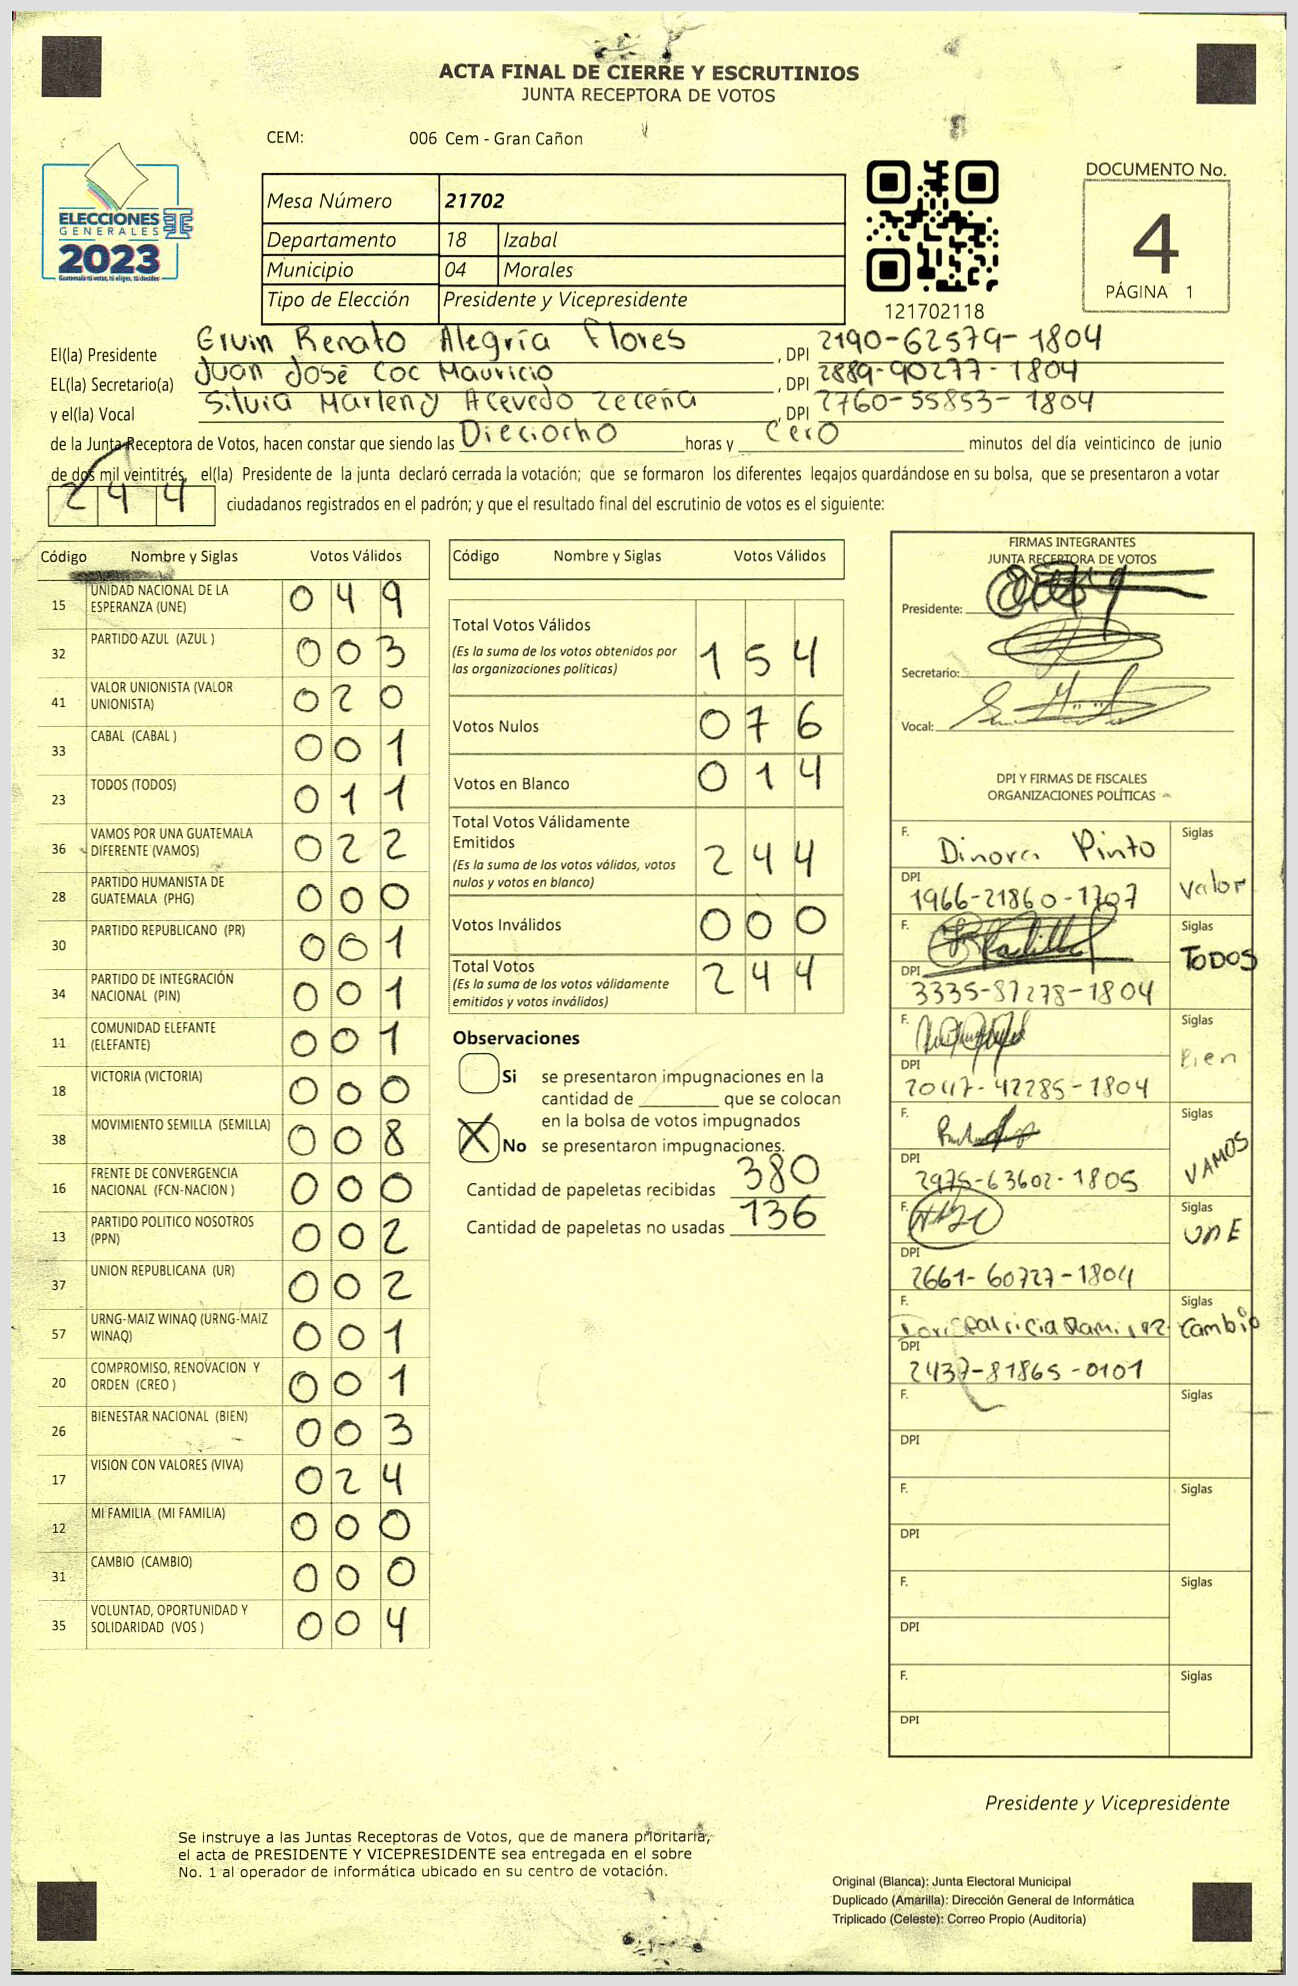 ACTA FINAL DE CIERRE Y ESCRUTINIOS
JUNTA RECEPTORA DE VOTOS
CEM: 006 Cem - Gran Cañon
ELECCIONES
GENERALES
2023
Mesa Número 21702
Departamento 18 Izabal
Municipio 04 Morales
Tipo de Elección Presidente y Vicepresidente
121702118
DOCUMENTO No.
4
PÁGINA 1
El(la) Presidente Elvin Renato Alegría flores , DPI 2190-62579-1804
EL(la) Secretario(a) Juan José Coc Mauricio , DPI 2889-90277-1804
y el(la) Vocal Silvia Marleny Acevedo Zeceña , DPI 2760-55853-1804
de la Junta Receptora de Votos, hacen constar que siendo las Dieciocho horas y Cero minutos del día veinticinco de junio
de dos mil veintitrés, el(la) Presidente de la junta declaró cerrada la votación; que se formaron los diferentes legajos guardándose en su bolsa, que se presentaron a votar
244 ciudadanos registrados en el padrón; y que el resultado final del escrutinio de votos es el siguiente:
Código Nombre y Siglas Votos Válidos
15 UNIDAD NACIONAL DE LA ESPERANZA (UNE) 049
32 PARTIDO AZUL (AZUL ) 003
41 VALOR UNIONISTA (VALOR UNIONISTA) 020
33 CABAL (CABAL ) 001
23 TODOS (TODOS) 011
36 VAMOS POR UNA GUATEMALA DIFERENTE (VAMOS) 022
28 PARTIDO HUMANISTA DE GUATEMALA (PHG) 000
30 PARTIDO REPUBLICANO (PR) 001
34 PARTIDO DE INTEGRACIÓN NACIONAL (PIN) 001
11 COMUNIDAD ELEFANTE (ELEFANTE) 001
18 VICTORIA (VICTORIA) 000
38 MOVIMIENTO SEMILLA (SEMILLA) 008
16 FRENTE DE CONVERGENCIA NACIONAL (FCN-NACION ) 000
13 PARTIDO POLITICO NOSOTROS (PPN) 002
37 UNION REPUBLICANA (UR) 002
57 URNG-MAIZ WINAQ (URNG-MAIZ WINAQ) 001
20 COMPROMISO, RENOVACION Y ORDEN (CREO ) 001
26 BIENESTAR NACIONAL (BIEN) 003
17 VISION CON VALORES (VIVA) 024
12 MI FAMILIA (MI FAMILIA) 000
31 CAMBIO (CAMBIO) 000
35 VOLUNTAD, OPORTUNIDAD Y SOLIDARIDAD (VOS ) 004
Código Nombre y Siglas Votos Válidos
Total Votos Válidos 154
(Es la suma de los votos obtenidos por
las organizaciones políticas)
Votos Nulos 076
Votos en Blanco 014
Total Votos Válidamente
Emitidos 244
(Es la suma de los votos válidos, votos
nulos y votos en blanco)
Votos Inválidos 000
Total Votos 244
(Es la suma de los votos válidamente
emitidos y votos inválidos)
Observaciones
Si se presentaron impugnaciones en la
cantidad de que se colocan
en la bolsa de votos impugnados
X No se presentaron impugnaciones.
Cantidad de papeletas recibidas 380
Cantidad de papeletas no usadas 136
FIRMAS INTEGRANTES
JUNTA RECEPTORA DE VOTOS
Presidente:
Secretario:
Vocal:
DPI Y FIRMAS DE FISCALES
ORGANIZACIONES POLÍTICAS
F. Dinora Pinto Siglas
DPI 1966-21860-1707 Valor
F. Siglas
DPI 3335-87278-1804 TODOS
F. Siglas
DPI 2047-42285-1804 Bien
F. Siglas
DPI 2975-63602-1805 VAMOS
F. Siglas
DPI 2661-60727-1804 UNE
F. Patricia Siglas
DPI 2437-81865-0101 Cambio
F. Siglas
DPI
F. Siglas
DPI
F. Siglas
DPI
F. Siglas
DPI
Presidente y Vicepresidente
Se instruye a las Juntas Receptoras de Votos, que de manera prioritaria,
el acta de PRESIDENTE Y VICEPRESIDENTE sea entregada en el sobre
No. 1 al operador de informática ubicado en su centro de votación.
Original (Blanca): Junta Electoral Municipal
Duplicado (Amarilla): Dirección General de Informática
Triplicado (Celeste): Correo Propio (Auditoría)